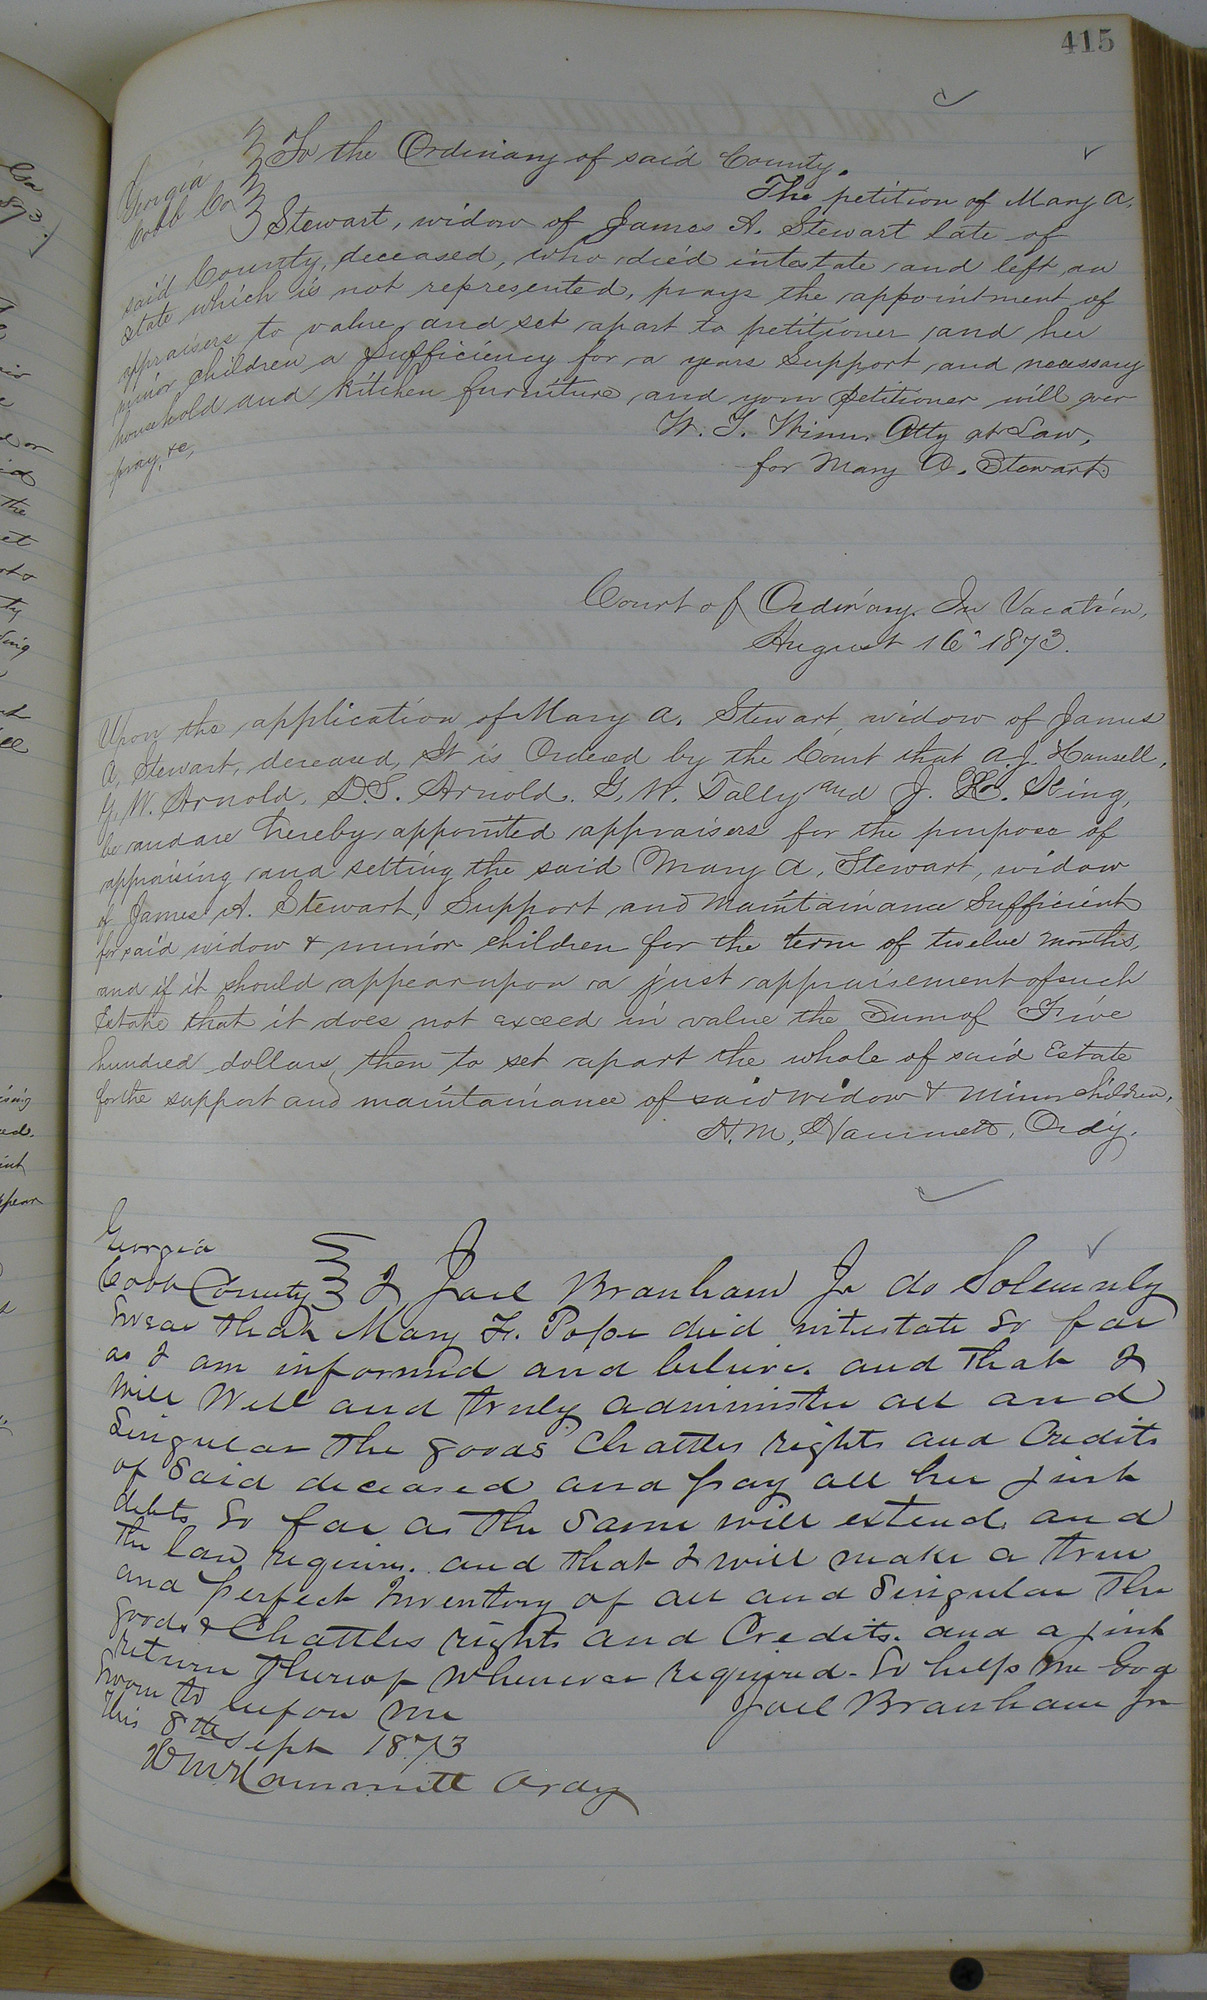 415
Georgia
Cobb Co
To the Ordinary of said County.
The petition of Mary A.
Stewart, widow of James A. Stewart late of
said County, deceased, who died intestate and left an
state which is not represented, prays the appointment of
appraisers to value and set apart to petitioner and her
minor children a Sufficiency for a years Support and necessary
household and Kitchen furniture and your petitioner will ever
pray, &c,
W. T. Winn Atty at Law,
for Mary A. Stewart
Court of Ordinary In Vacation,
August 16" 1873.
Upon the application of Mary A. Stewart, widow of James
A. Stewart, deceased, It is Ordered by the Court that A. J. Hansell,
G. W. Arnold, D. S. Arnold. G. W. Tally and J. H. King,
be and are hereby appointed appraisers for the purpose of
appraising and setting the said Mary A. Stewart, widow
of James A. Stewart, Support and Maintainance Sufficient
for said widow & minor children for the term of twelve months,
and if it should appear upon a just appraisement of such
Estate that it does not exceed in value the Sum of Five
hundred dollars, then to set apart the whole of said Estate
for the support and maintainance of said widow & minor children,
H. M. Hammett, Ordy.
Georgia
Cobb County I Joel Branham Jr do Solemnly
Swear that Mary F. Pope died intestate So far
as I am informed and believe. and that I
Will Well and truly administer all and
Singular the goods Chattles rights and Credits
of Said deceased and pay all her just
debts So far as the Same will extend. and
the law requires. and that I will make a true
and perfect Inventory of all and Singular the
goods & Chattles rights and Credits. and a just
return thereof Whenever required. So help me God
Sworn to before me
Joel Branham Jr
This 8th Sept 1873
H M Hammett Ordy